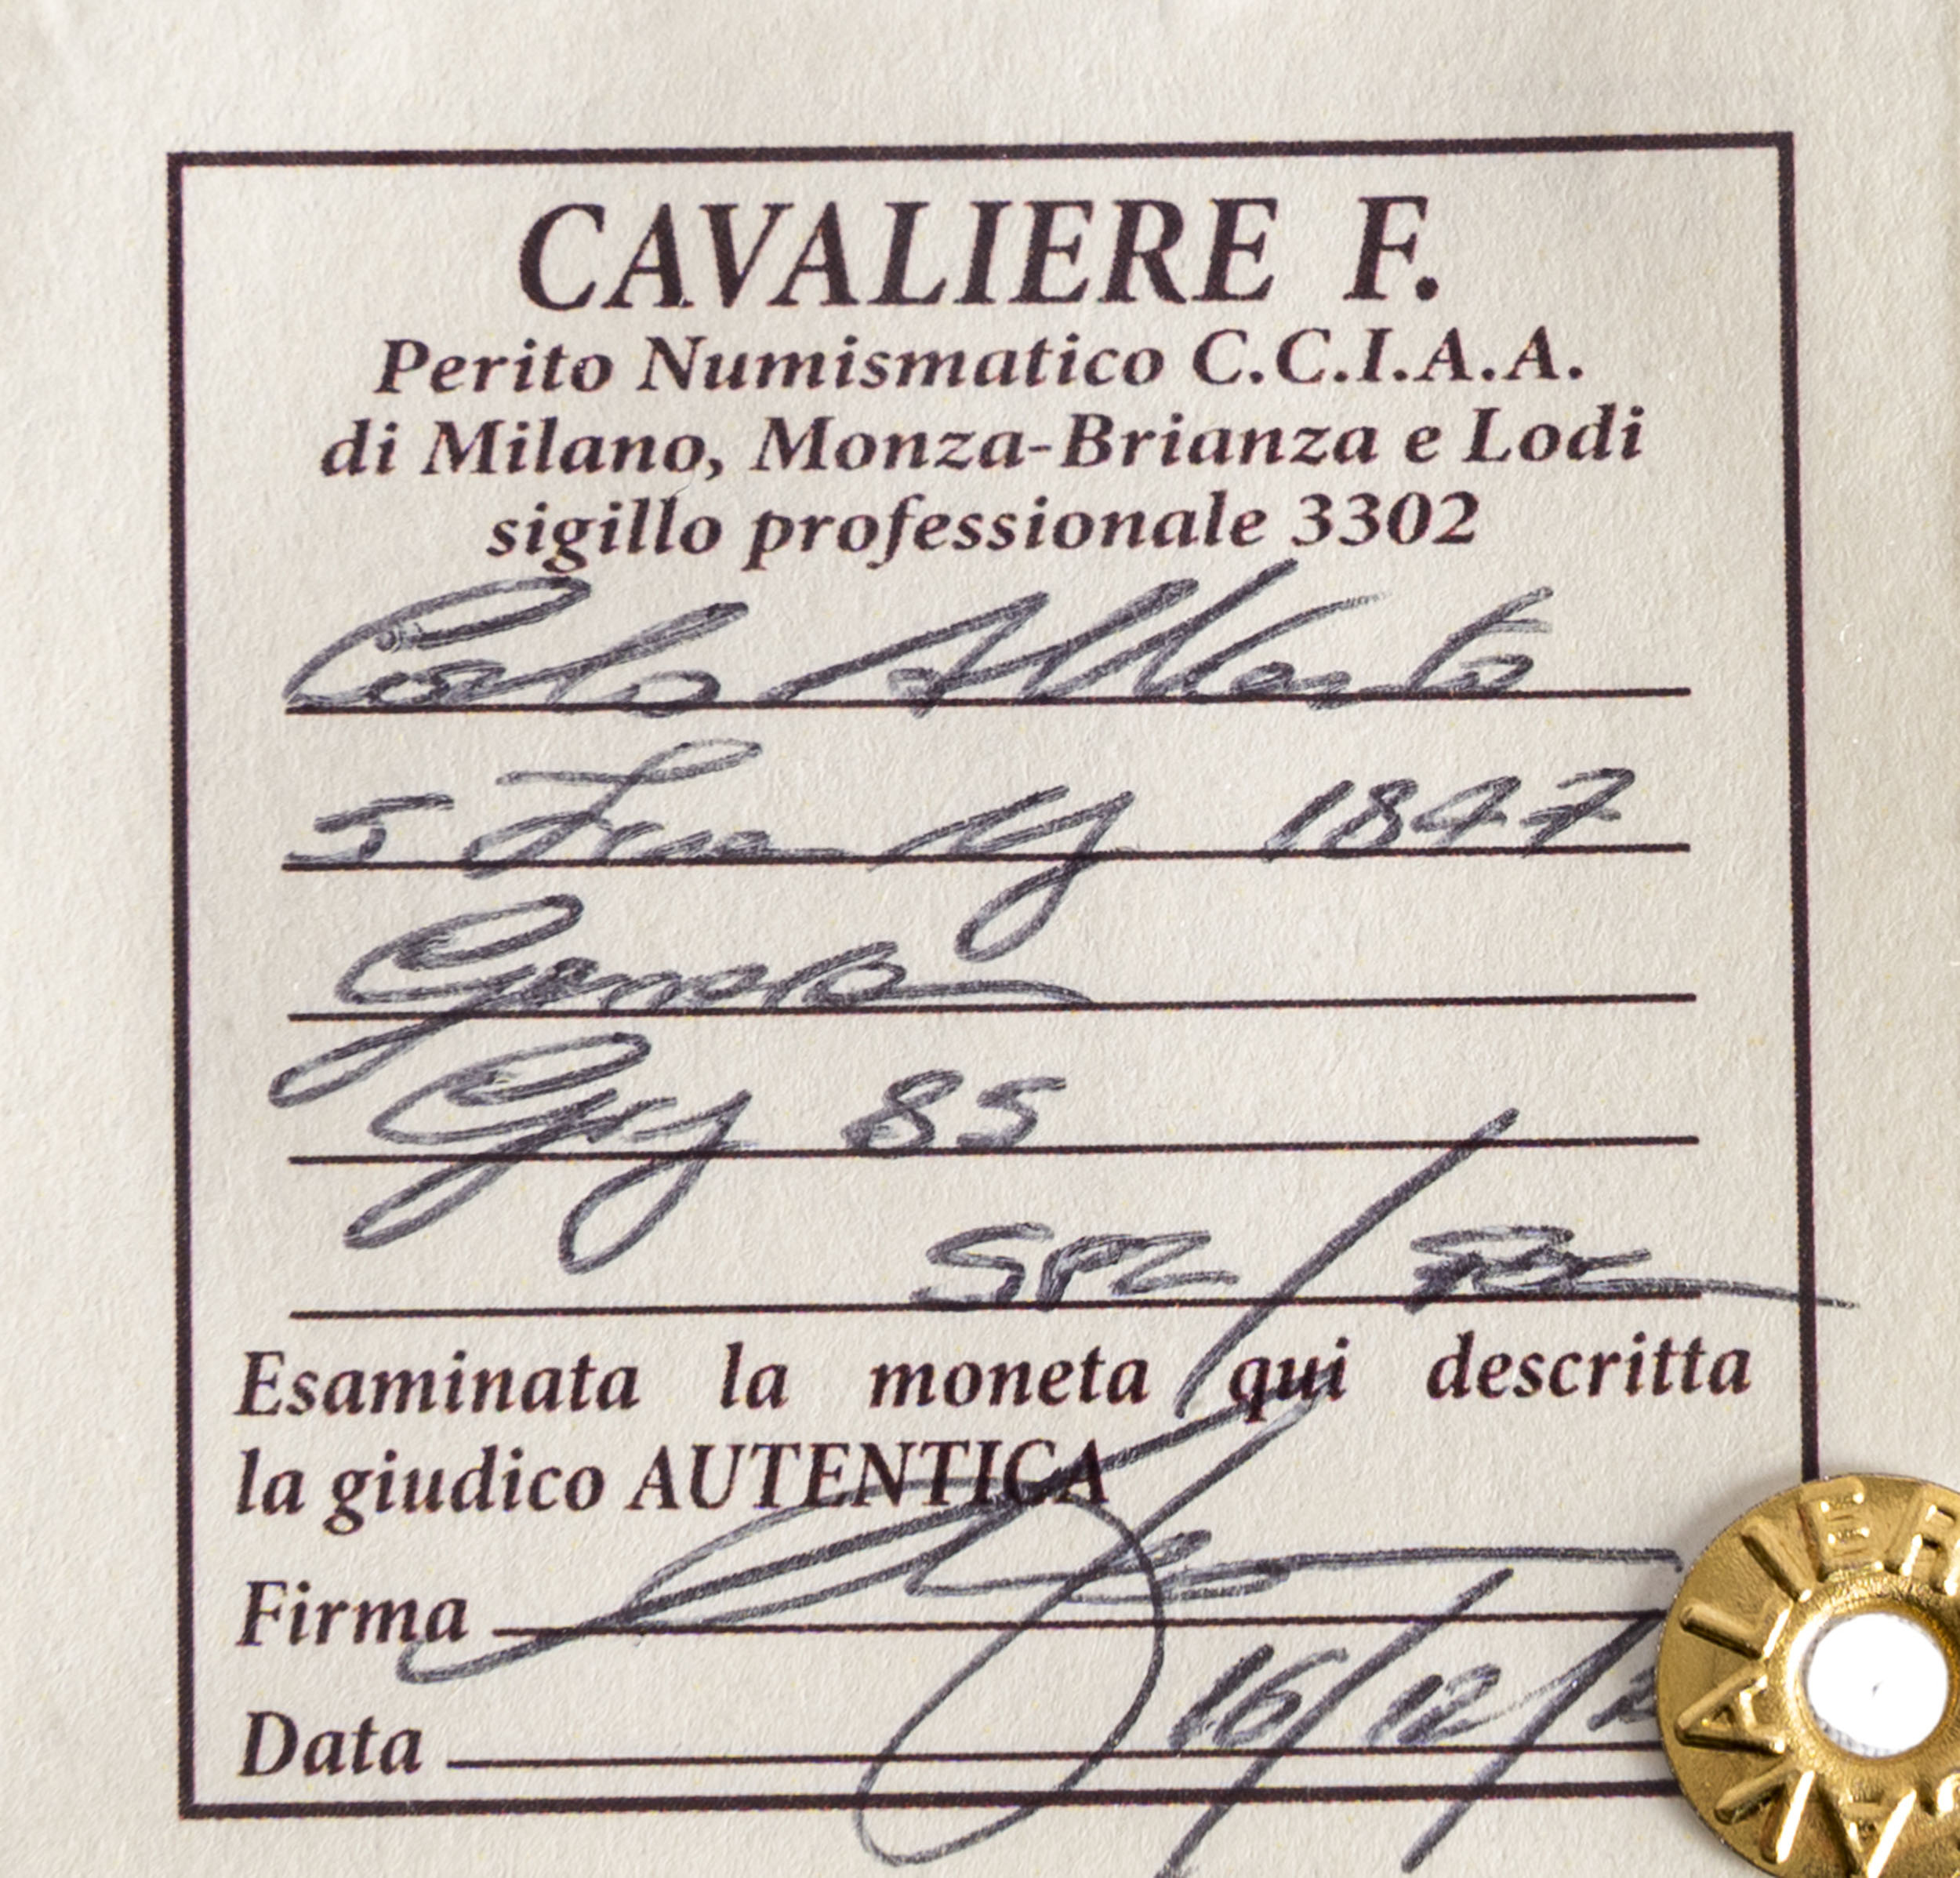 CAVALIERE F.
Perito Numismatico C.C.I.A.A.
di Milano, Monza-Brianza e Lodi
sigillo professionale 3302
Carlo Alberto
5 Lire Ag 1847
Genova
Gig 85
SPL /
Esaminata la moneta qui descritta
la giudico AUTENTICA
Firma
Data 16/12/2
CAVALIER